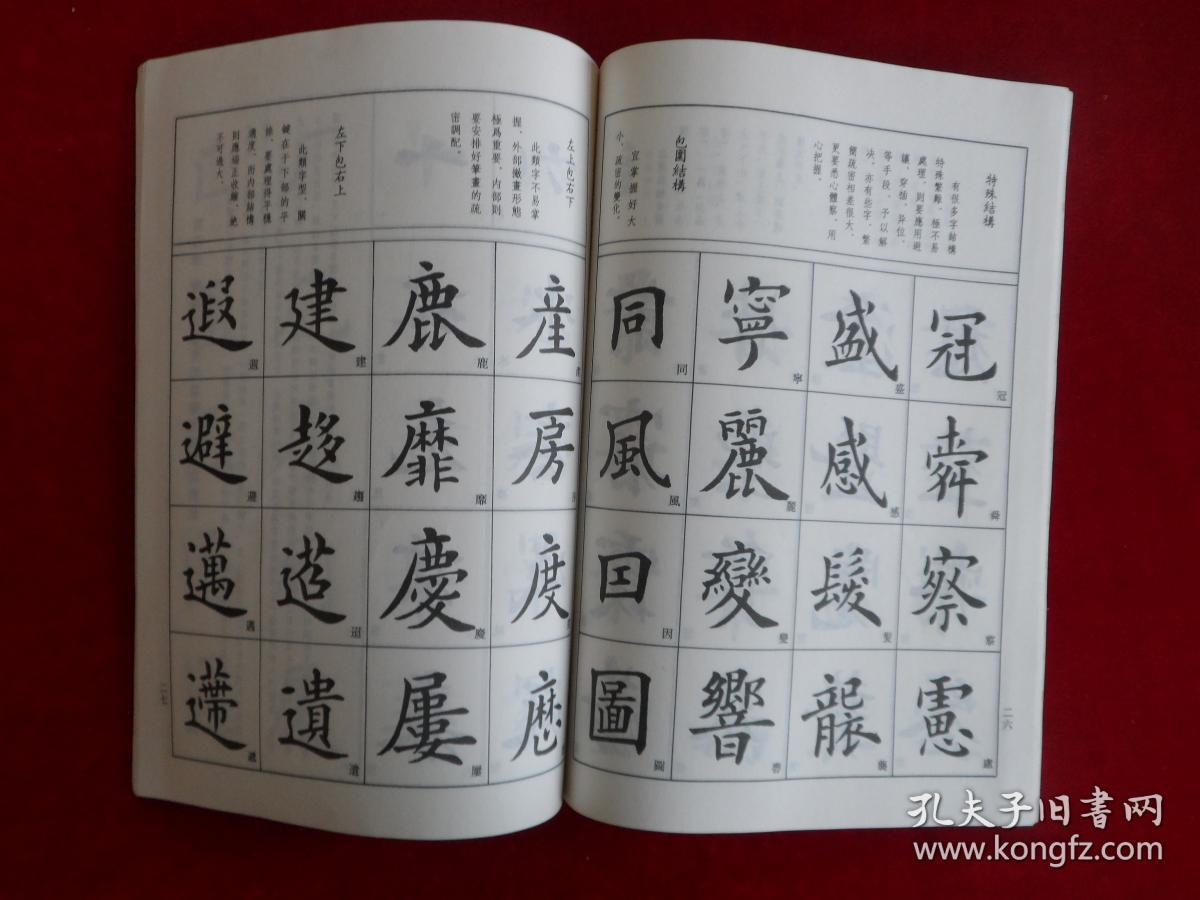 特殊結構
有很多字結構
特殊繁難，極不易
處理，則要應用避
讓、穿插、异位、
等手段，予以解
决。亦有些字，繁
簡疏密相差很大，
更要悉心體察，用
心把握。
包圍結構
宜掌握好大
小、疏密的變化。
冠 冠
舜 舜
察 察
慮
盛 盛
感 感
髮 髮
襲 襲
寧 寧
麗 麗
變 變
響
同 同
風 風
因 因
圖 圖
二六
左上包右下
此類字不易掌
握，外部撇畫形態
極爲重要，内部則
要安排好筆畫的疏
密調配。
左下包右上
此類字型，關
鍵在于下部的平
捺，要處理得平穩
適度，而内部結構
則應緒正收縮，絶
不可過大。
産
房
度
鹿 鹿
靡 靡
慶 慶
屢 屢
建 建
趨
迢
遺 遺
遐 遐
避 避
邁 邁
遰
二七
孔夫子旧書网
www.kongfz.com